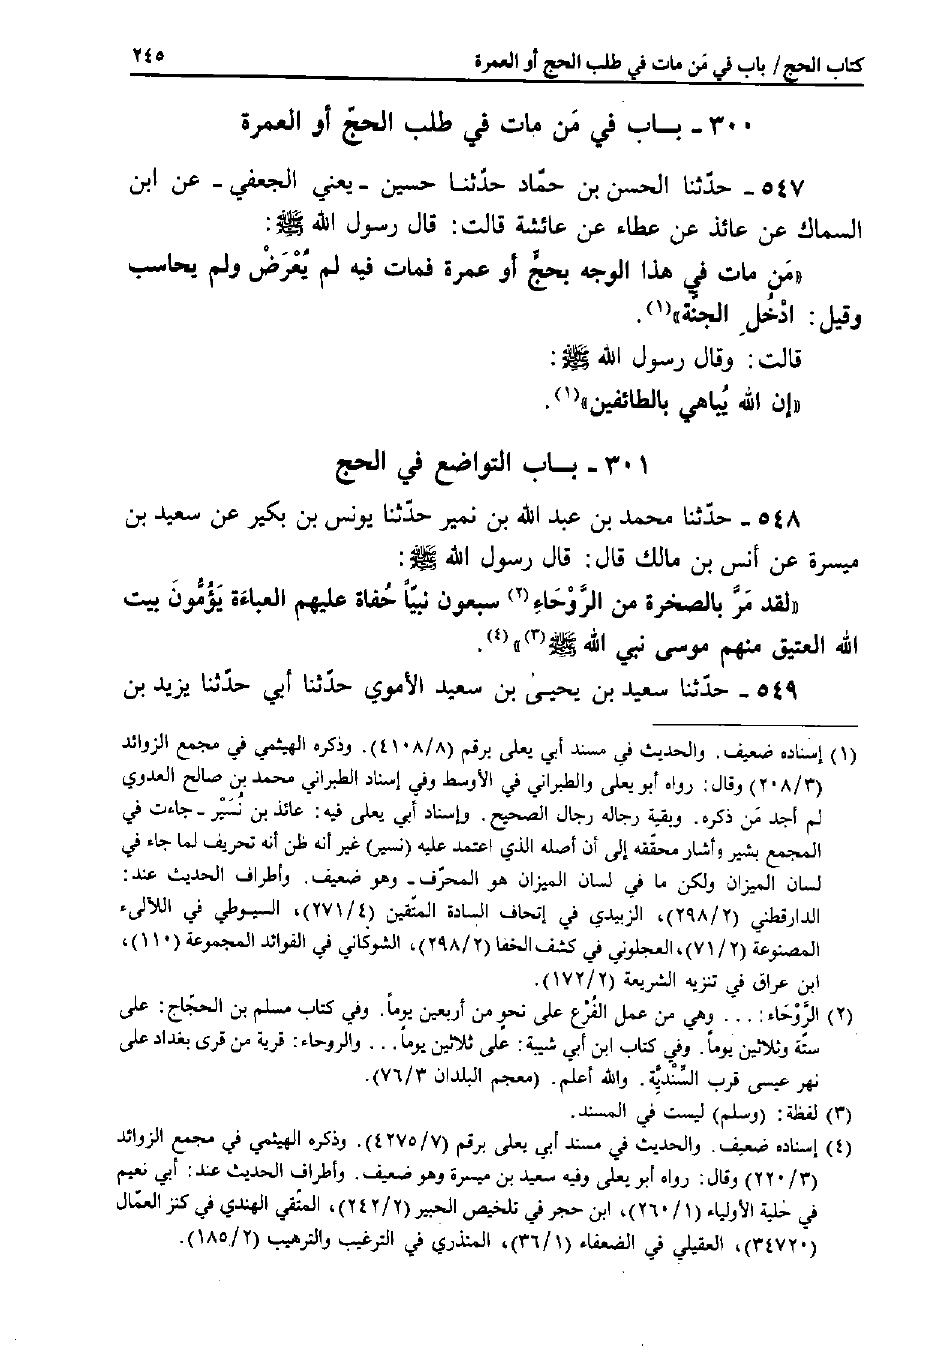 كتاب الحج / باب في مَن مات في طلب الحج أو العمرة ٢٤٥
٣٠٠ ـ بـاب في مَن مات في طلب الحجّ أو العمرة
٥٤٧ ـ حدّثنا الحسن بن حمّاد حدّثنـا حسين ـ يعني الجعفي ـ عن ابن
السماك عن عائذ عن عطاء عن عائشة قالت: قال رسول الله ﷺ:
«مَن مات في هذا الوجه بحجٍّ أو عمرة فمات فيه لم يُعْرَضْ ولم يحاسب
وقيل: ادْخُلِ الجنَّة»(١).
قالت: وقال رسول الله ﷺ:
«إن الله يُباهي بالطائفين»(١).
٣٠١ ـ بـاب التواضع في الحج
٥٤٨ ـ حدّثنا محمد بن عبد الله بن نمير حدّثنا يونس بن بكير عن سعيد بن
ميسرة عن أنس بن مالك قال: قال رسول الله ﷺ:
«لقد مَرَّ بالصخرة من الرَّوْحَاءِ(٢) سبعون نبيّاً حُفاة عليهم العباءَة يَؤُمُّونَ بيت
الله العتيق منهم موسى نبي الله ﷺ(٣)»(٤).
٥٤٩ ـ حدّثنا سعيد بن يحيىٰ بن سعيد الأموي حدّثنا أبي حدّثنا يزيد بن
(١) إسناده ضعيف. والحديث في مسند أبي يعلى برقم (٤١٠٨/٨). وذكره الهيثمي في مجمع الزوائد
(٢٠٨/٣) وقال: رواه أبو يعلى والطبراني في الأوسط وفي إسناد الطبراني محمد بن صالح العدوي
لم أجد مَن ذكره. وبقية رجاله رجال الصحيح. وإسناد أبي يعلى فيه: عائذ بن نُسَيْر ـ جاءت في
المجمع بشير وأشار محققه إلى أن أصله الذي اعتمد عليه (نسير) غير أنه ظن أنه تحريف لما جاء في
لسان الميزان ولكن ما في لسان الميزان هو المحرّف ـ وهو ضعيف. وأطراف الحديث عند:
الدارقطني (٢٩٨/٢)، الزبيدي في إتحاف السادة المتّقين (٢٧١/٤)، السيوطي في اللآلىء
المصنوعة (٧١/٢)، العجلوني في كشف الخفا (٢٩٨/٢)، الشوكاني في الفوائد المجموعة (١١٠)،
ابن عراق في تنزيه الشريعة (١٧٢/٢).
(٢) الرَّوْحَاء: ... وهي من عمل الفُرْع على نحوٍ من أربعين يوماً. وفي كتاب مسلم بن الحجّاج: على
ستّة وثلاثين يوماً. وفي كتاب ابن أبي شيبة: على ثلاثين يوماً... والروحاء: قرية من قرى بغداد على
نهر عيسى قرب السِّنْدِيَّة. والله أعلم. (معجم البلدان ٧٦/٣).
(٣) لفظة: (وسلم) ليست في المسند.
(٤) إسناده ضعيف. والحديث في مسند أبي يعلى برقم (٤٢٧٥/٧). وذكره الهيثمي في مجمع الزوائد
(٢٢٠/٣) وقال: رواه أبو يعلى وفيه سعيد بن ميسرة وهو ضعيف. وأطراف الحديث عند: أبي نعيم
في حلية الأولياء (٢٦٠/١)، ابن حجر في تلخيص الحبير (٢٤٢/٢)، المتّقي الهندي في كنز العمّال
(٣٤٧٢٠)، العقيلي في الضعفاء (٣٦/١)، المنذري في الترغيب والترهيب (١٨٥/٢).